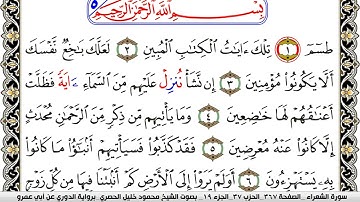 بِسْمِ اللَّهِ الرَّحْمَٰنِ الرَّحِيمِ
طسٓمٓ ١ تِلْكَ ءَايَٰتُ الْكِتَٰبِ الْمُبِينِ ٢ لَعَلَّكَ بَٰخِعٌ نَّفْسَكَ
أَلَّا يَكُونُوا۟ مُؤْمِنِينَ ٣ إِن نَّشَأْ نُنزِلْ عَلَيْهِم مِّنَ السَّمَآءِ ءَايَةً فَظَلَّتْ
أَعْنَٰقُهُمْ لَهَا خَٰضِعِينَ ٤ وَمَا يَأْتِيهِم مِّن ذِكْرٍ مِّنَ الرَّحْمَٰنِ مُحْدَثٍ
إِلَّا كَانُوا۟ عَنْهُ مُعْرِضِينَ ٥ فَقَدْ كَذَّبُوا۟ فَسَيَأْتِيهِمْ أَنۢبَٰٓؤُا۟ مَا كَانُوا۟
بِهِۦ يَسْتَهْزِءُونَ ٦ أَوَلَمْ يَرَوْا۟ إِلَى الْأَرْضِ كَمْ أَنۢبَتْنَا فِيهَا مِن كُلِّ زَوْجٍ
سورة الشعراء . الصفحة ٣٦٧ الحزب ٣٧ الجزء ١٩ . بصوت الشيخ محمود خليل الحصري . برواية الدوري عن أبي عمرو